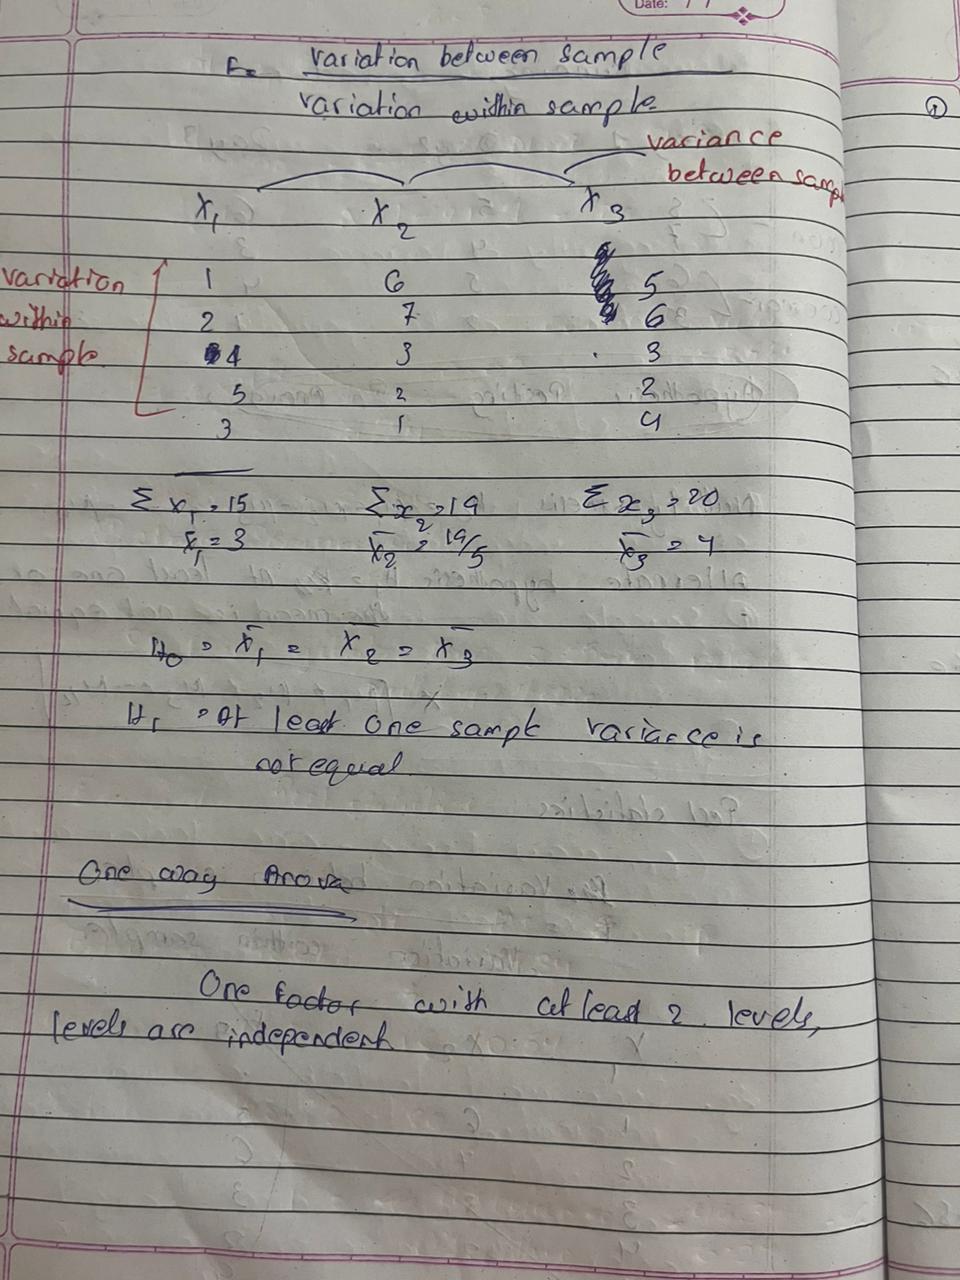 Date: / /
F = variation between sample
variation within sample
①
variance
between sampl
X₁ X₂ X₃
variation
within
sample
1 6 5
2 7 6
4 3 3
5 2 2
3 1 4
Σ x₁ = 15 Σ x₂ = 19 Σ x₃ = 20
x̄₁ = 3 x̄₂ = 19/5 x̄₃ = 4
H₀ = x̄₁ = x̄₂ = x̄₃
H₁ = At least one sample variance is
not equal
One way Anova
One factor with at least 2 levels,
levels are independent